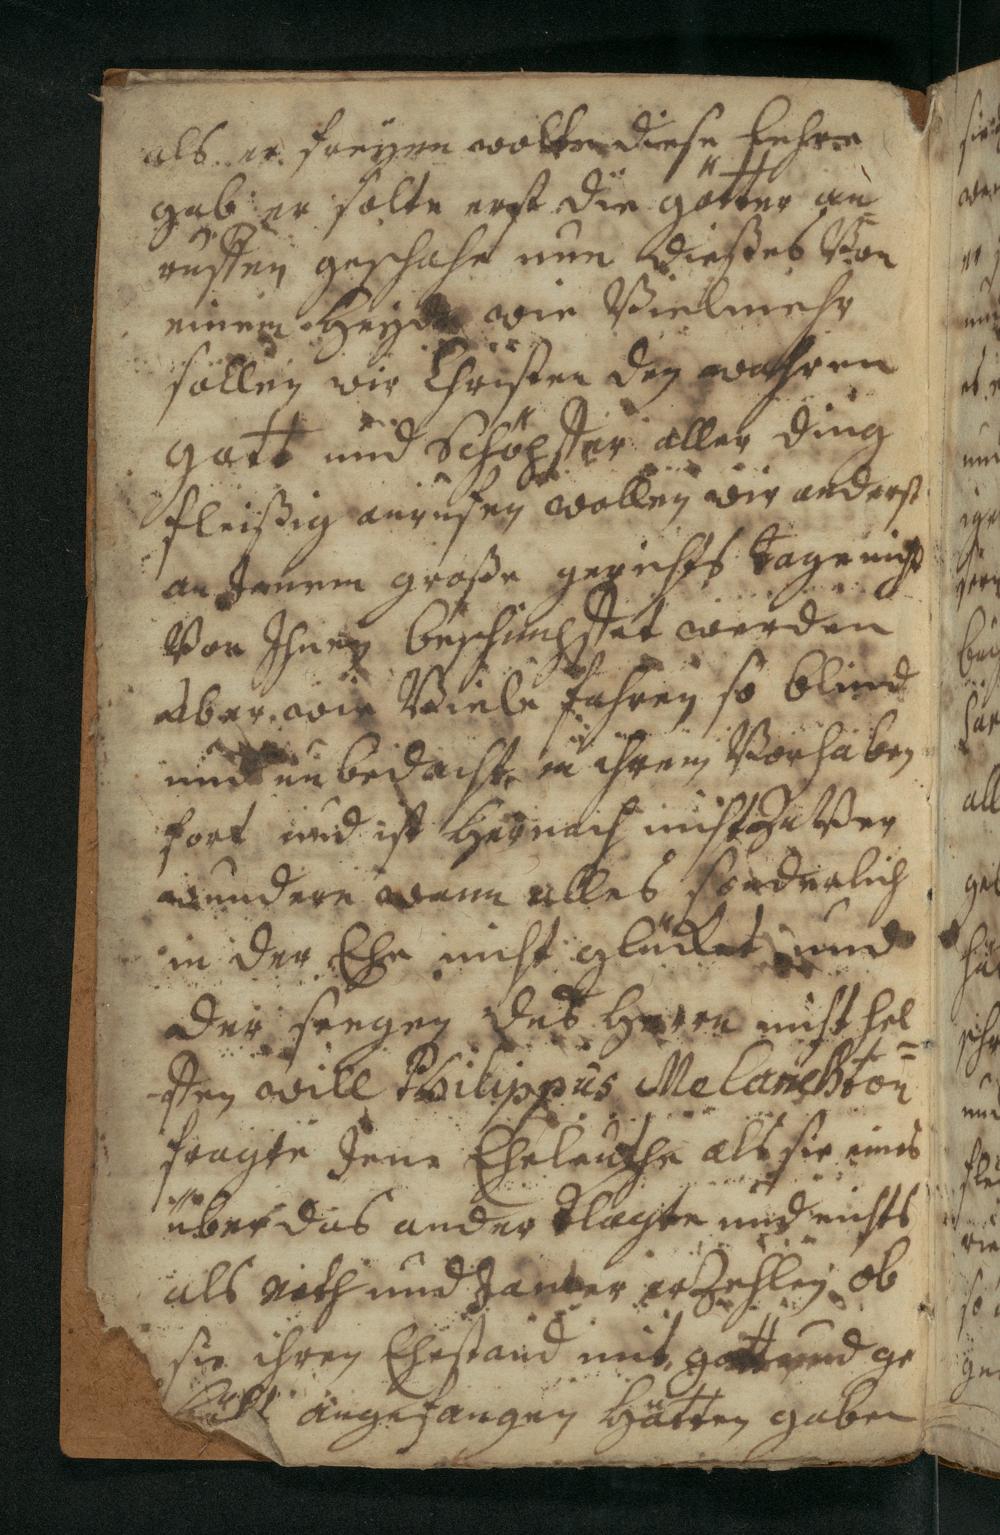 als er freyen wolte diese Lehre
gab er solte erst die götter an¬
ruffen geschahe nun dießes Von
einem Heyden wie Vielmehr
sollen wir Christen den wahren
gott und Schöpffer aller ding
fleißig anrufen wollen wir anderst
an Jenem große gerichts tage nicht
Von Ihnen beschimpffet werden
Aber wie Viele fahren so blind
und unbedacht in ihrem Vorhaben
fort und ist Hernach nicht zu Ver
wundern wann alles sonderlich
in der Ehe nicht glücket und
der seegen des Herrn nicht hel=
ffen will Philippus Melanchton
fragte Jene Eheleuthe als sie eines
über das ander klagte und nichts
als noth und Jamer erzehlen ob
sie ihren Ehestand mit gott und ge
angefangen Hätten gaben